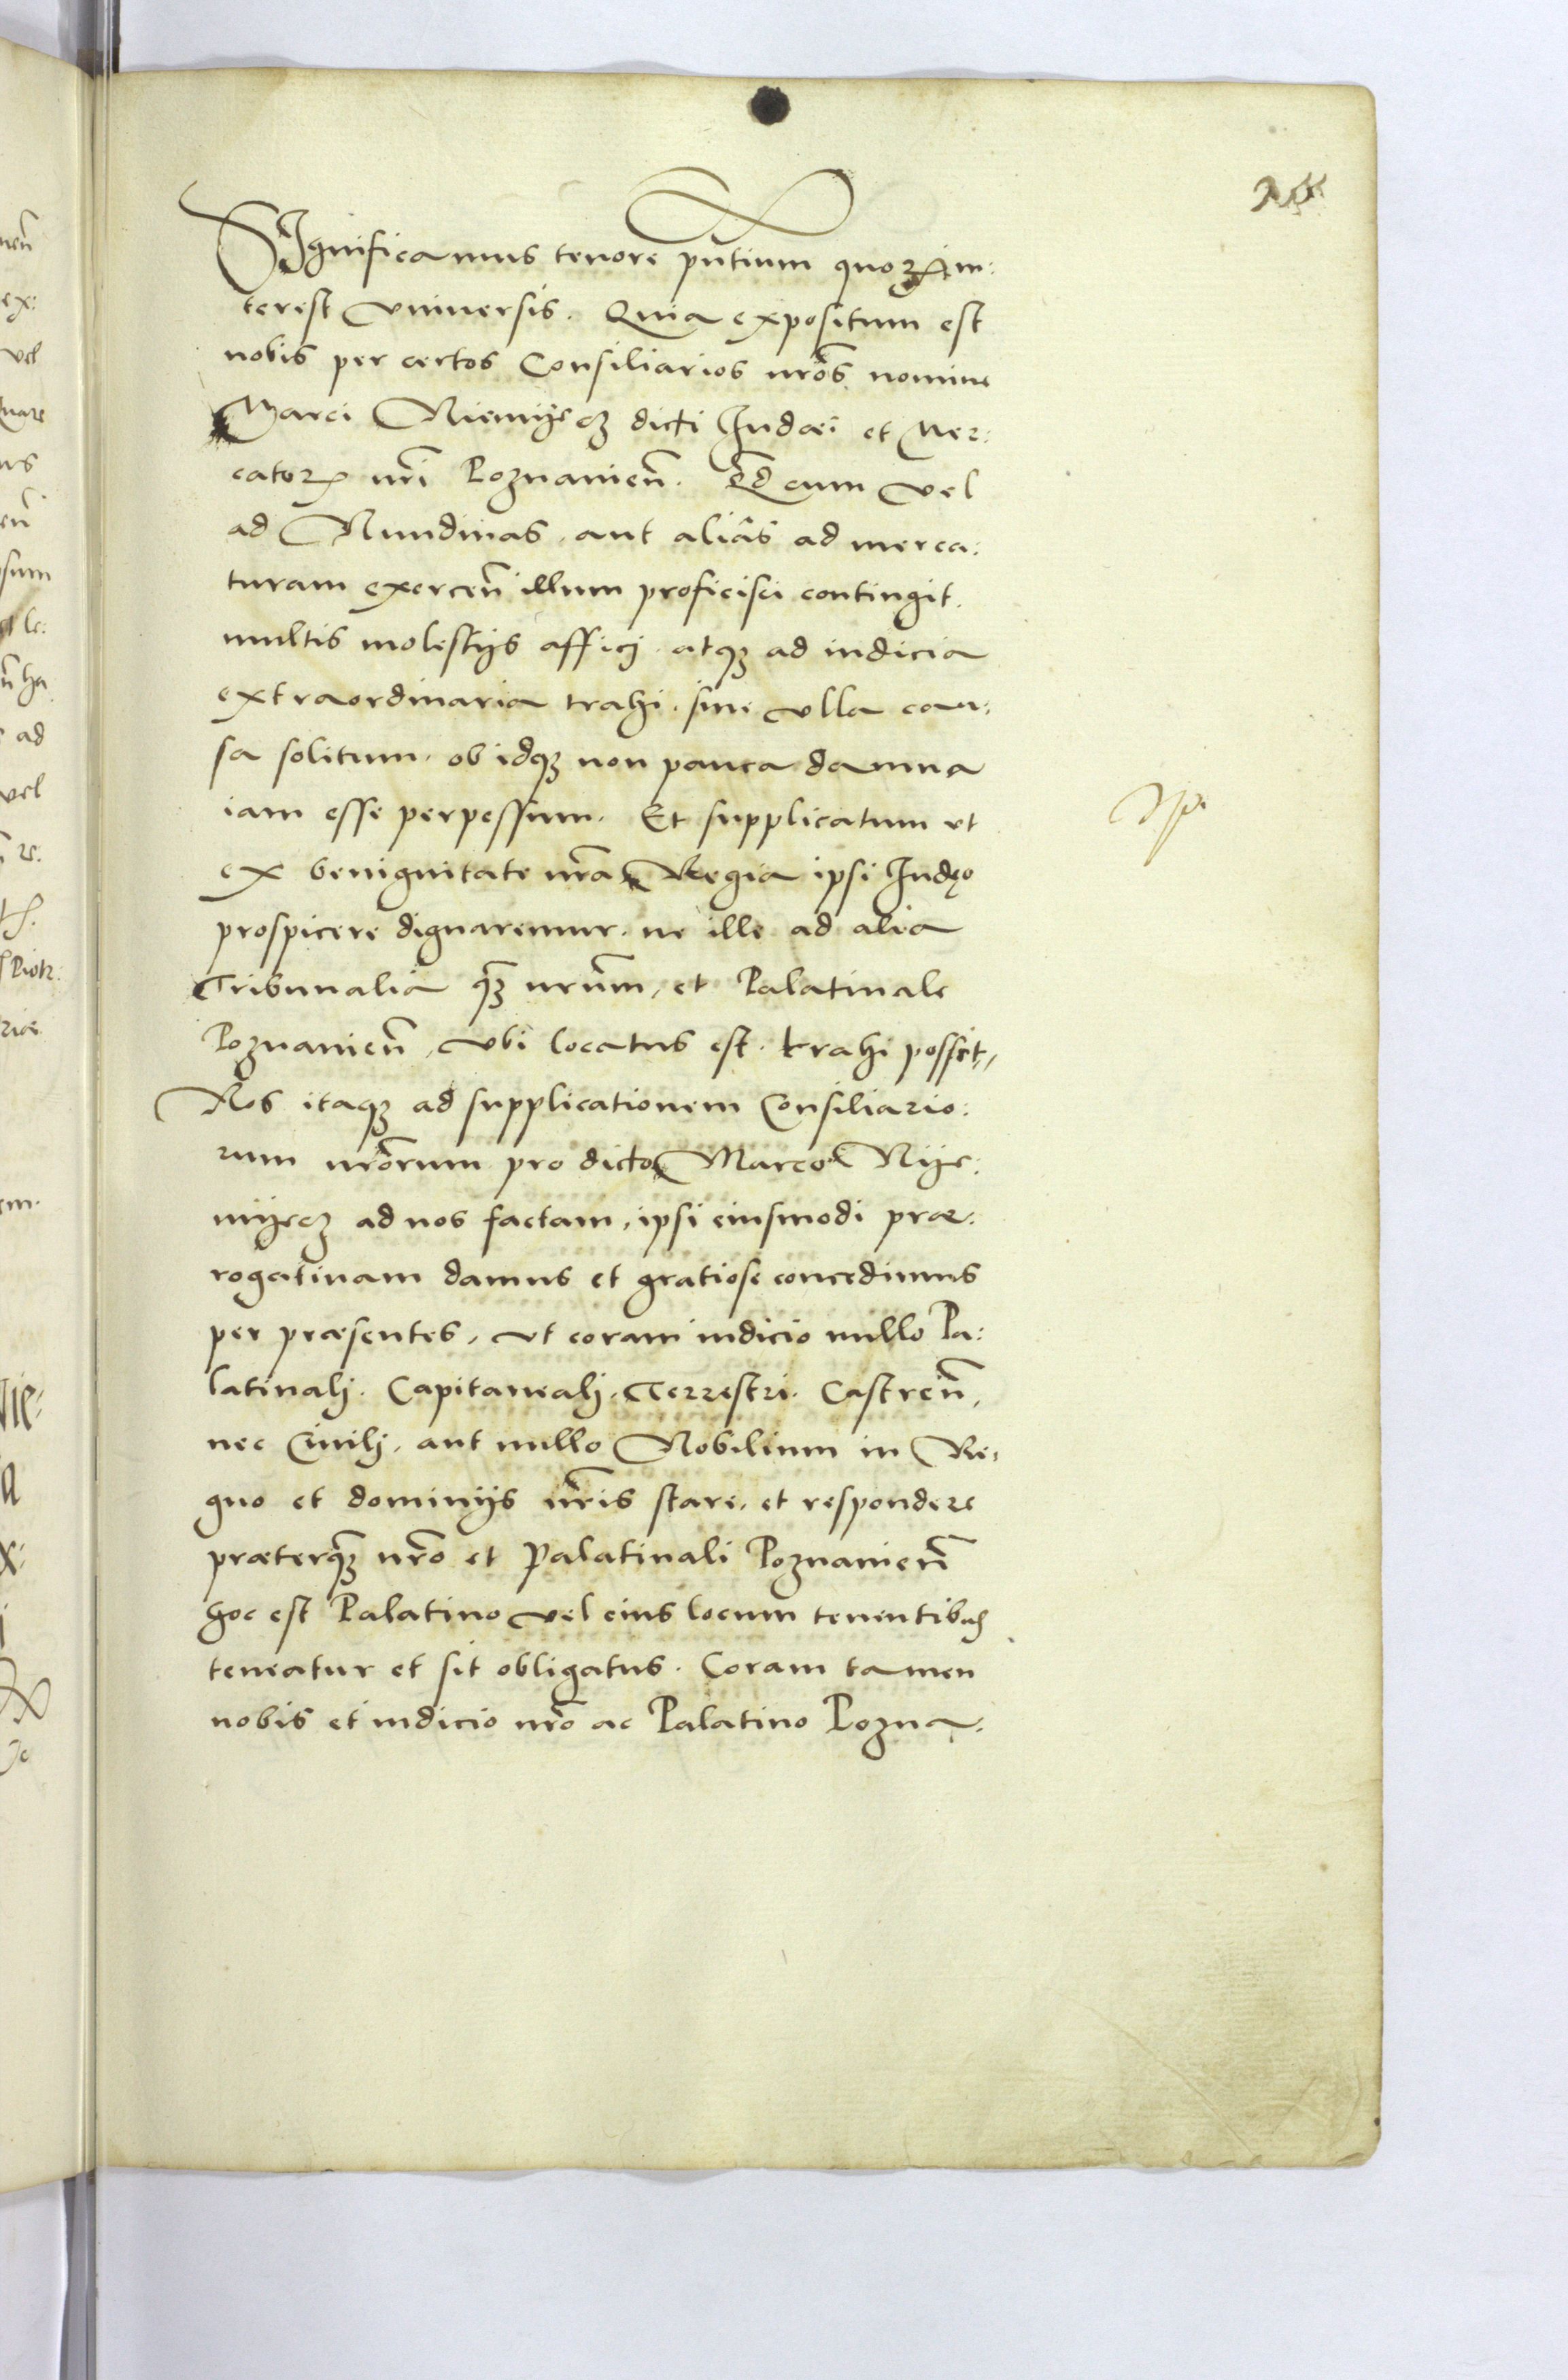 SIgnificamus tenore pn̄tium quorꝝ in:
terest vniuersis. Quia expositum est
nobis per certos Consiliarios nr̄os nomine
Marci Niemijecz dicti Iudæi et Mer:
catorꝭ nr̄i Poznanien̄. Qd̄ eum vel
ad Nundinas, aut aliâs ad merca:
turam exercen̄ illum proficisci contingit.
multis molestijs affici, atqꝫ ad iudicia
extraordinaria trahi, sine vlla cau:
sa solitum, ob idqꝫ non pauca damna
iam esse perpessum. Et supplicatum vt
ex benignitate nr̄a Regia ipsi Iudęo
prospicere dignaremur, ne ille ad alia
Tribunalia qꝫ̄ nr̄um, et Palatinale
Poznanien̄, vbi locatus est, trahi possit,,
Nos itaqꝫ ad supplicationem Consiliario:
rum nr̄orum pro dicto Marco Nije:
mijecz ad nos factam, ipsi eiusmodi præ:
rogatiuam damus et gratiose concedimus
per præsentes, vt coram iudicio nullo Pa:
latinalj. Capitanealj. Terrestri. Castren̄,
nec Ciuilj, aut nullo Nobilium in Re:
gno et dominijs nr̄is stare, et respondere
præterqꝫ̄ nr̄o et Palatinali Poznanien̄
hoc est Palatino vel eius locum tenentibus
teneatur et sit obligatus. Coram tamen
nobis et iudicio nr̄o ac Palatino Pozna: